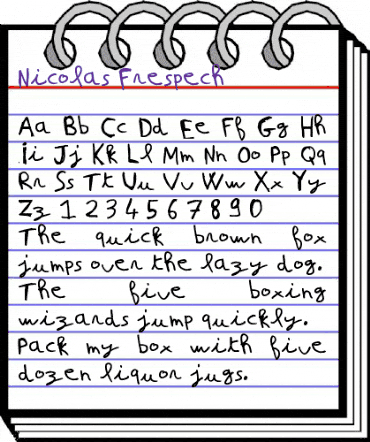 Nicolas Frespech
Aa Bb Cc Dd Ee Ff Gg Hh
Ii Jj Kk Ll Mm Nn Oo Pp Qq
Rr Ss Tt Uu Vv Ww Xx Yy
Zz 1 2 3 4 5 6 7 8 9 0
The quick brown fox
jumps over the lazy dog.
The five boxing
wizards jump quickly.
Pack my box with five
dozen liquor jugs.